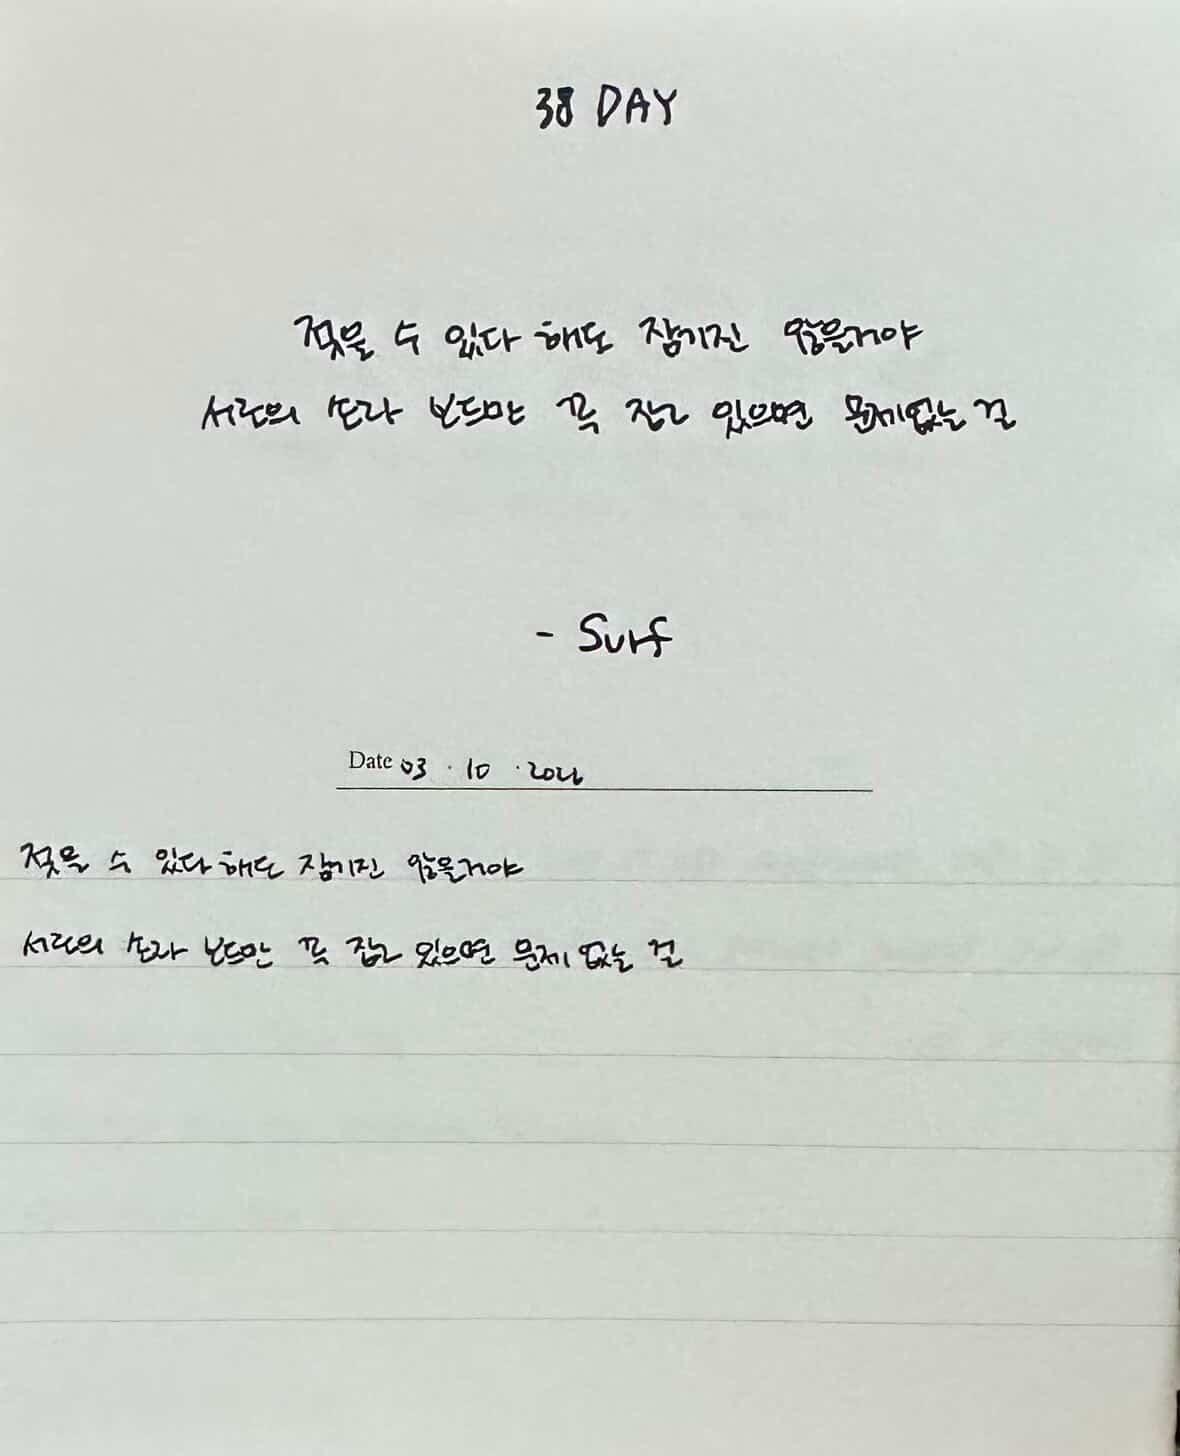 38 DAY
젖을 수 있다 해도 잠기진 않을거야
서로의 손과 보드만 꼭 잡고 있으면 문제없는 걸
- Surf
Date 03 · 10 · 2022
젖을 수 있다 해도 잠기진 않을거야
서로의 손과 보드만 꼭 잡고 있으면 문제 없는 걸